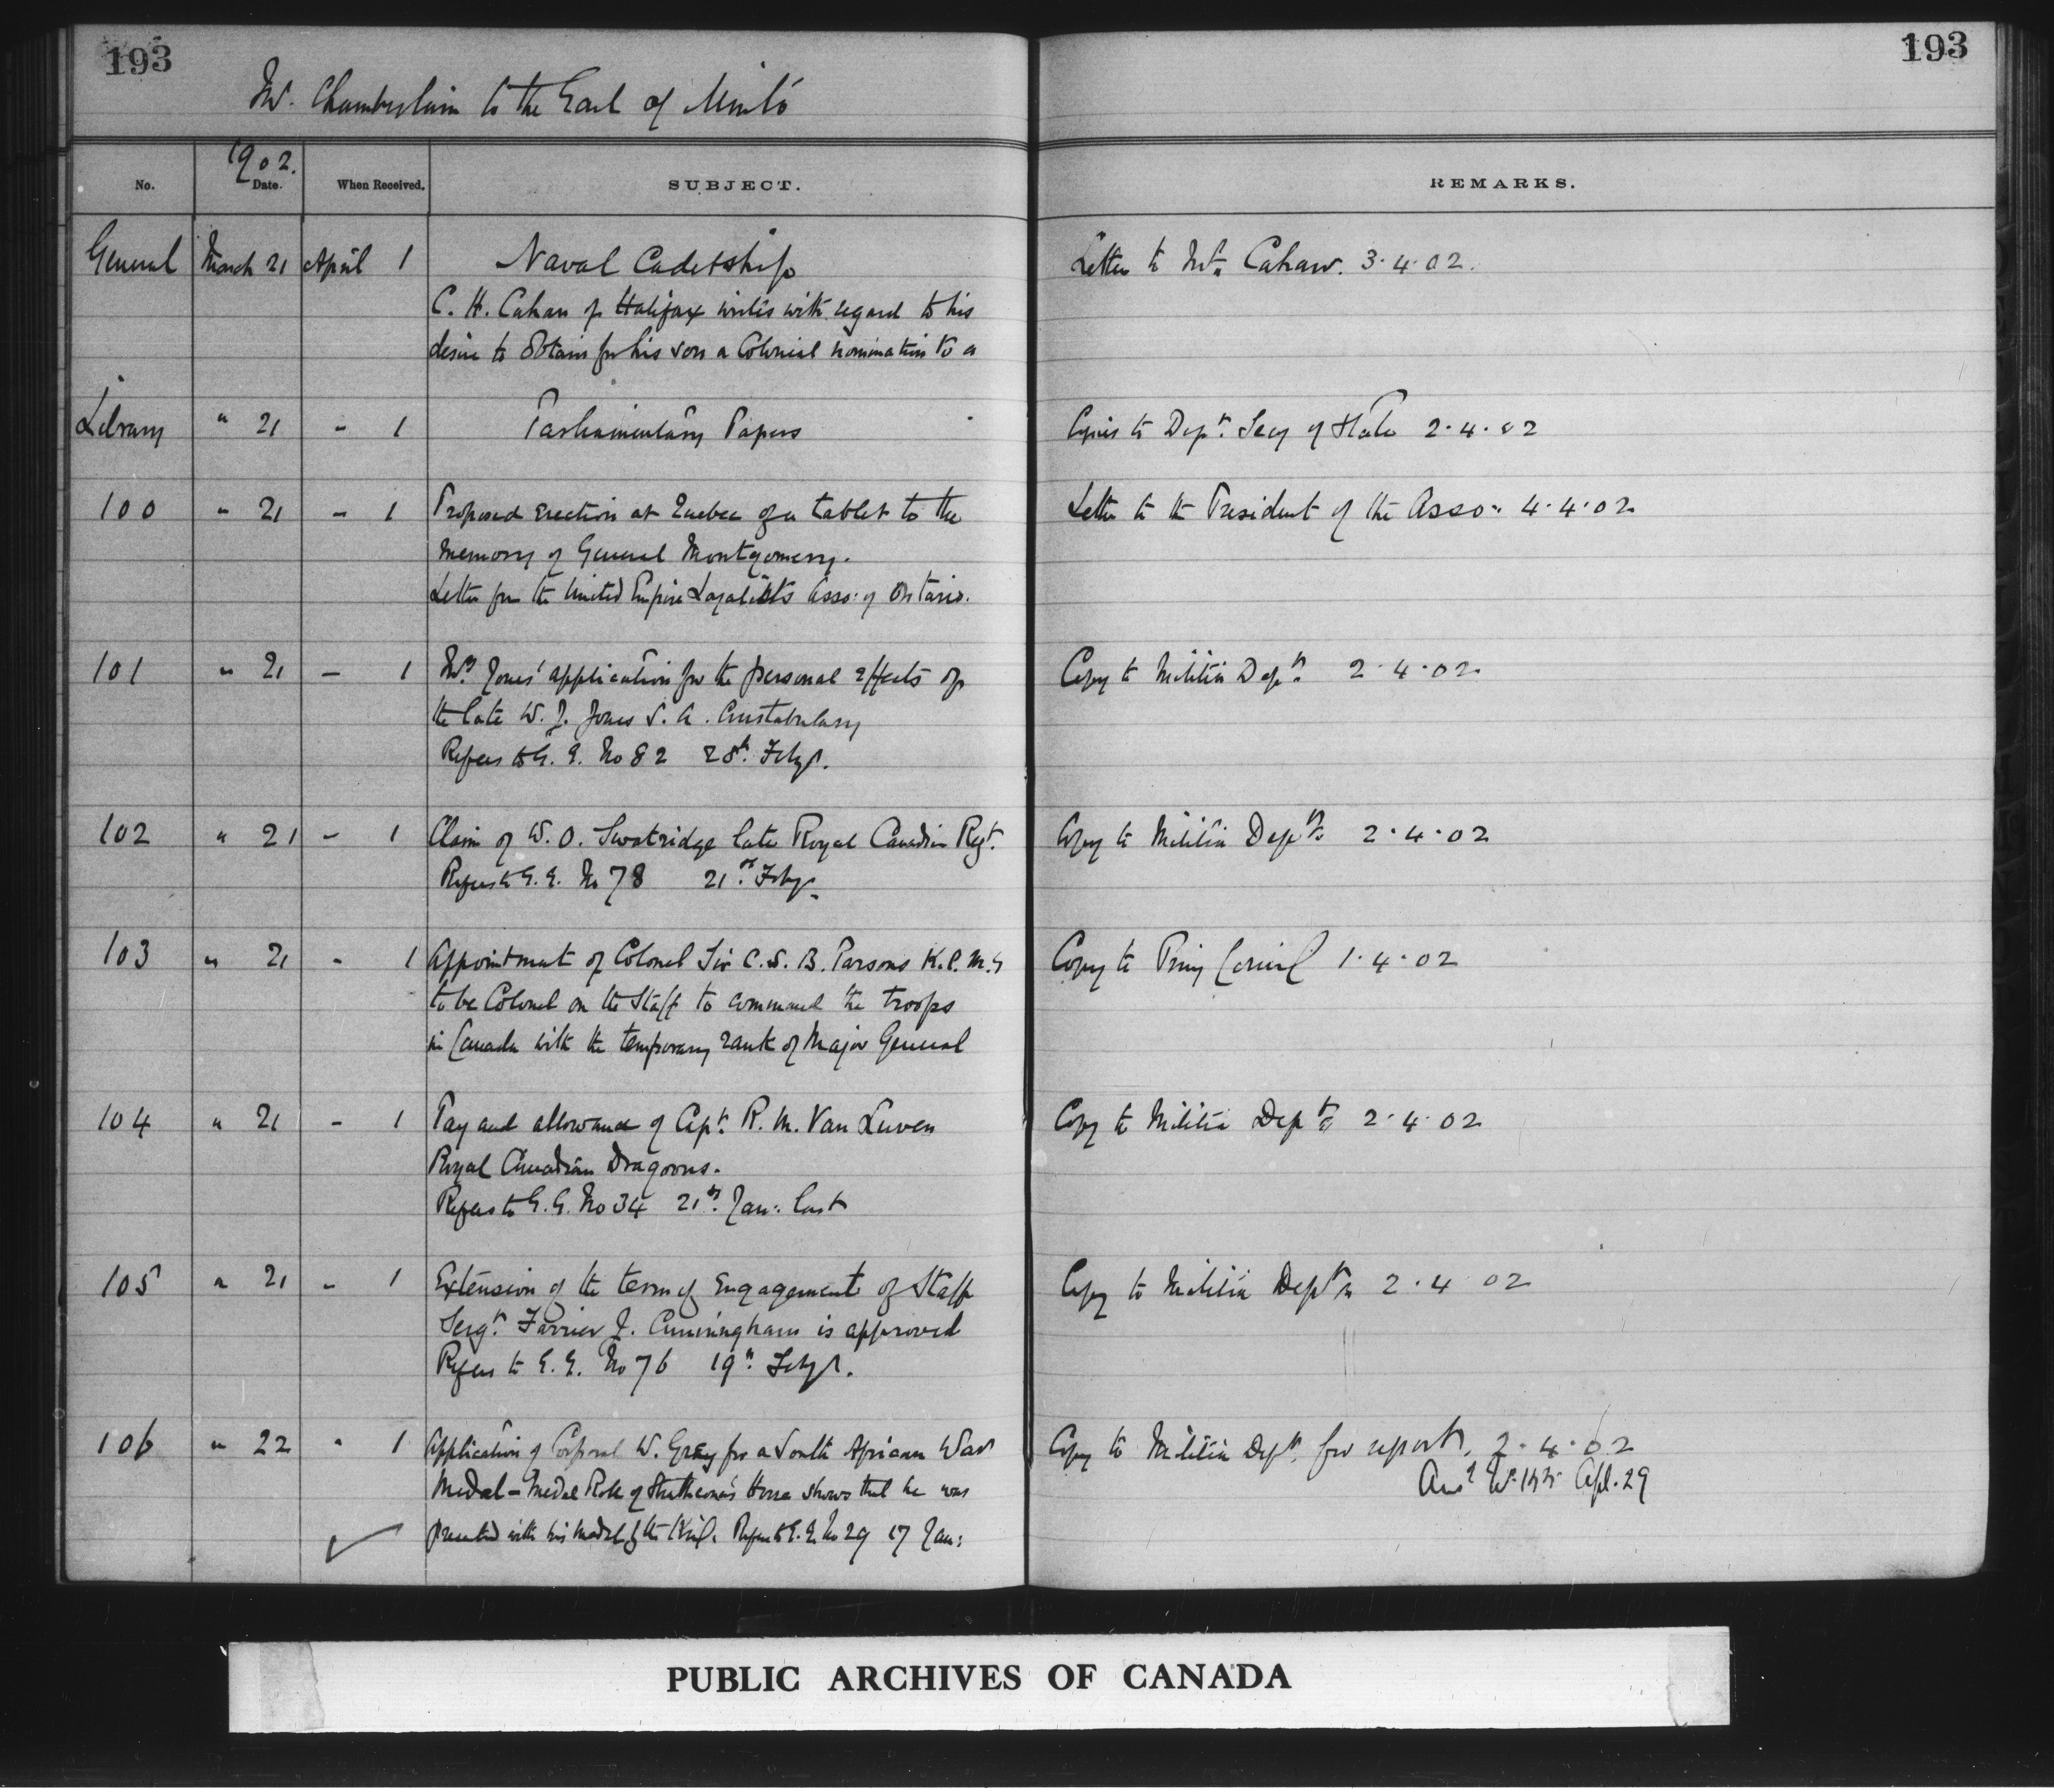 193
193
Mr. Chamberlain to the Earl of Minto
No.
1902.
Date.
When Received.
SUBJECT.
REMARKS.
General March 21 April 1 Naval Cadetship
C. H. Cahan of Halifax writes with regard to his
desire to obtain for his son a Colonial nomination to a
Letter to Mr. Cahan. 3.4.02.
Library " 21 " 1 Parliamentary Papers
Copies to Dept. Secy of State 2.4.02
100 " 21 " 1 Proposed erection at Quebec of a tablet to the
memory of General Montgomery.
Letter from the United Empire Loyalists Asso: of Ontario.
Letter to the President of the Asso: 4.4.02
101 " 21 " 1 Mrs. Jones' application for the personal effects of
the late W. J. Jones S. A. Constabulary
Refers to G. G. No 82 28th. Feby/.
Copy to Militia Dept. 2.4.02
102 " 21 " 1 Claim of W. O. Swatridge late Royal Canadian Regt.
Refers to G. G. No 78 21st. Feby/.
Copy to Militia Dept. 2.4.02
103 " 21 " 1 Appointment of Colonel Sir C. S. B. Parsons K.C.M.G
to be Colonel on the Staff to command the troops
in Canada with the temporary rank of Major General
Copy to Privy Council 1.4.02
104 " 21 " 1 Pay and allowance of Capt. R. M. Van Luven
Royal Canadian Dragoons.
Refers to G. G. No 34 21st. Jan: last
Copy to Militia Dept. 2.4.02
105 " 21 " 1 Extension of the term of Engagement of Staff
Sergt. Farrier J. Cunningham is approved
Refers to G. G. No 76 19th. Feby/.
Copy to Militia Dept. 2.4.02
106 " 22 " 1 Application of Corporal W. Gray for a South African War
Medal - Medal Role of Strathcona's Horse shows that he was
presented with his medal by the King. Refers to G. G. No 29 17 Jan:
Copy to Militia Dept. for report, 2.4.02
Ansd Apl. 29
PUBLIC ARCHIVES OF CANADA